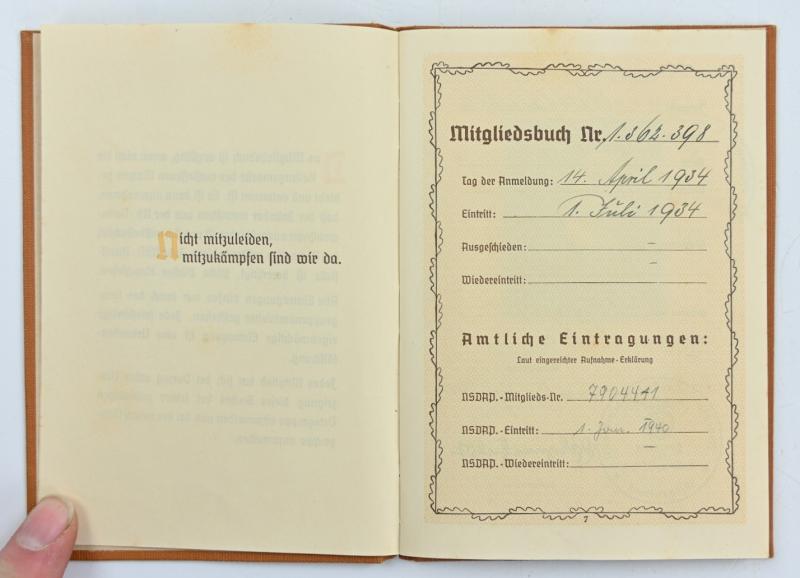 Nicht mitzuleiden,
mitzukämpfen sind wir da.
Mitgliedsbuch Nr. 1.362.398
Tag der Anmeldung: 14. April 1934
Eintritt: 1. Juli 1934
Ausgeschieden: –
Wiedereintritt: –
Amtliche Eintragungen:
Laut eingereichter Aufnahme-Erklärung
NSDAP.-Mitglieds-Nr. 7904441
NSDAP.-Eintritt: 1. Jan. 1940
NSDAP.-Wiedereintritt: –
7